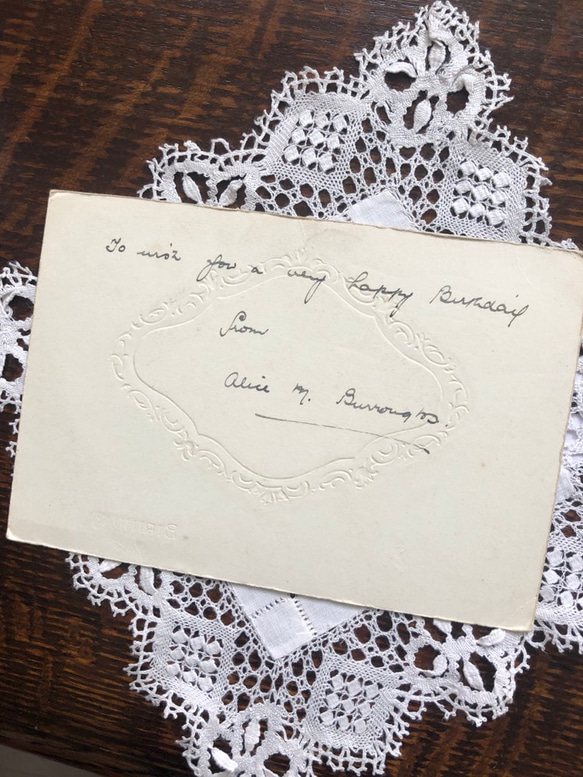 To wish you a very happy Birthday
from
Alice M. Burroughs.